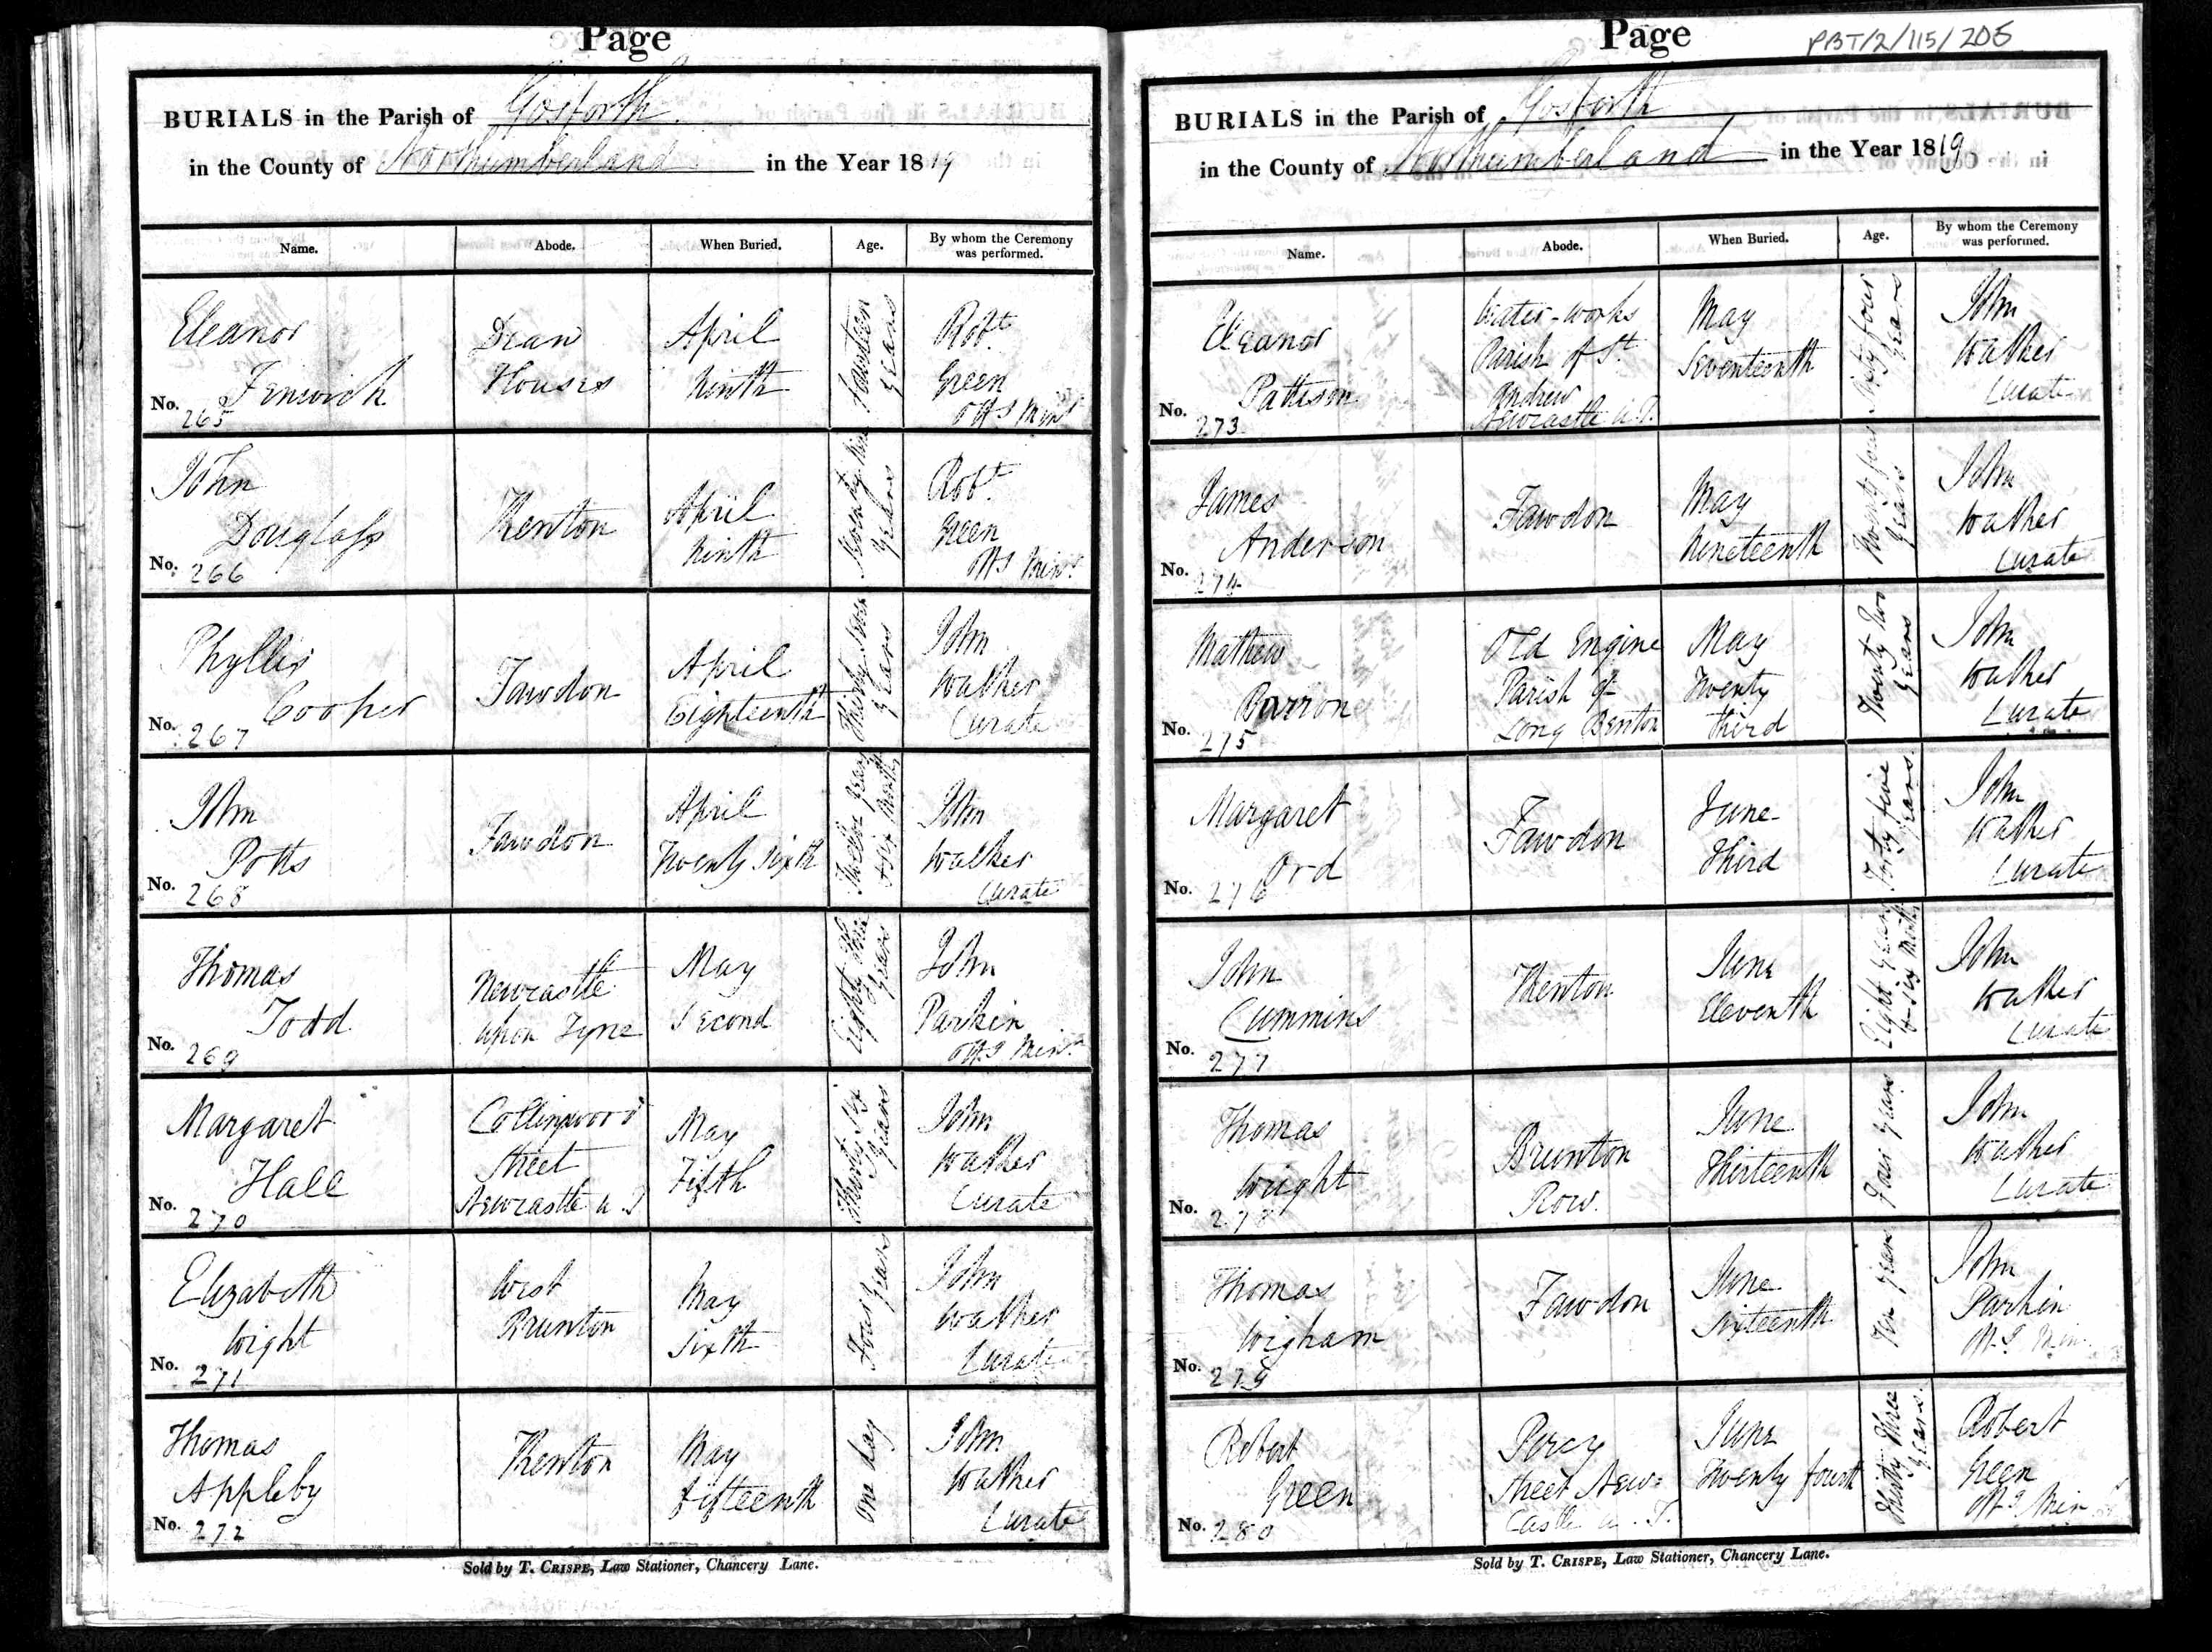 Page
BURIALS in the Parish of Gosforth
in the County of Northumberland in the Year 1819
Name. Abode. When Buried. Age. By whom the Ceremony was performed.
Eleanor Fenwick
No. 265
Dean Houses
April Ninth
Years
Robt. Green Offg Minr
John Douglass
No. 266
Kenton
April Ninth
Seventy Nine Years
Robt. Green Offg Minr.
Phyllis Cooper
No. 267
Fawdon
April Eighteenth
Thirty Years
John Walker Curate
John Potts
No. 268
Fawdon
April Twenty Sixth
Twelve years & six Months
John Walker Curate
Thomas Todd
No. 269
Newcastle upon Tyne
May Second
Eighty Three Years
John Parkin Offg Minr.
Margaret Hall
No. 270
Collingwood Street Newcastle u. T
May Fifth
Thirty Six Years
John Walker Curate
Elizabeth Wight
No. 271
West Brunton
May Sixth
Four Years
John Walker Curate
Thomas Appleby
No. 272
Kenton
May fifteenth
One day
John Walker Curate
Sold by T. CRISPE, Law Stationer, Chancery Lane.
Page
PBT/2/115/205
BURIALS in the Parish of Gosforth
in the County of Northumberland in the Year 1819
Name. Abode. When Buried. Age. By whom the Ceremony was performed.
Eleanor Pattison
No. 273
Water-works Parish of St. Andrew Newcastle u. T.
May Seventeenth
Sixty four Years
John Walker Curate
James Anderson
No. 274
Fawdon
May Nineteenth
Twenty four Years
John Walker Curate
Mathew Barron
No. 275
Old Engine Parish of Long Benton
May Twenty third
Twenty Two Years
John Walker Curate
Margaret Ord
No. 276
Fawdon
June Third
Forty five Years
John Walker Curate
John Cummins
No. 277
Kenton
June Eleventh
Eight Years & six Months
John Walker Curate
Thomas Wright
No. 278
Brunton Row.
June Thirteenth
Four Years
John Walker Curate
Thomas Wigham
No. 279
Fawdon
June Sixteenth
Ten years
John Parkin Offg Min
Robert Green
No. 280
Percy Street New=Castle u. T.
June Twenty fourth
Thirty Three Years.
Robert Green Offg Min
Sold by T. CRISPE, Law Stationer, Chancery Lane.